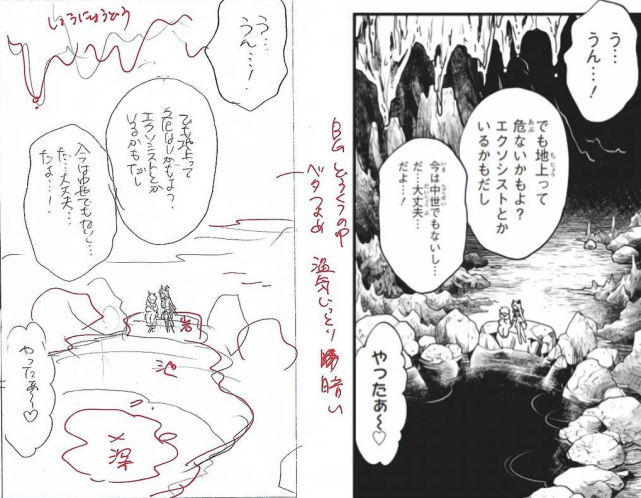 しょうにゅうどう
う…
うん…!
でも地上って
危ないかもよ?
エクソシストとか
いるかもだし
今は中世でもないし…
だ…大丈夫…
だよ…!
岩
池
深
やったぁ〜♡
どうくつの中
ベタつよめ
湿気じっとり
暗い
う…
うん…!
でも地上って
ちじょう
危ないかもよ?
あぶ
エクソシストとか
いるかもだし
今は中世でもないし…
いま ちゅうせい
だ…大丈夫…
だいじょうぶ
だよ…!
やったぁ〜♡